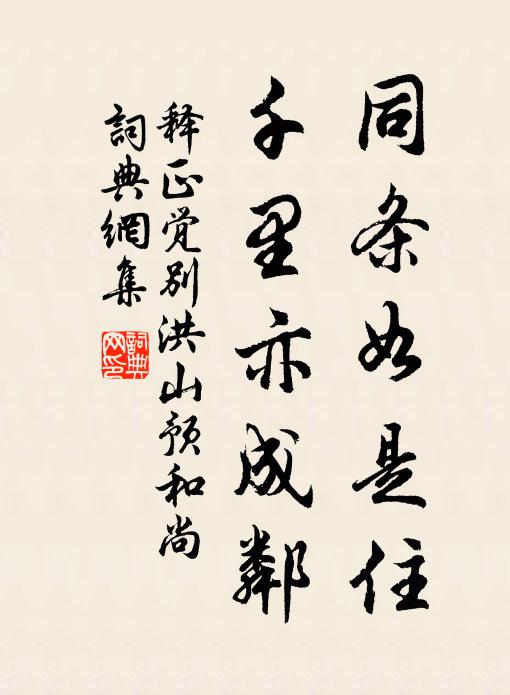 同条如是住
千里亦成鄰
释正覚别洪山预和尚
詞典網集
詞典网印